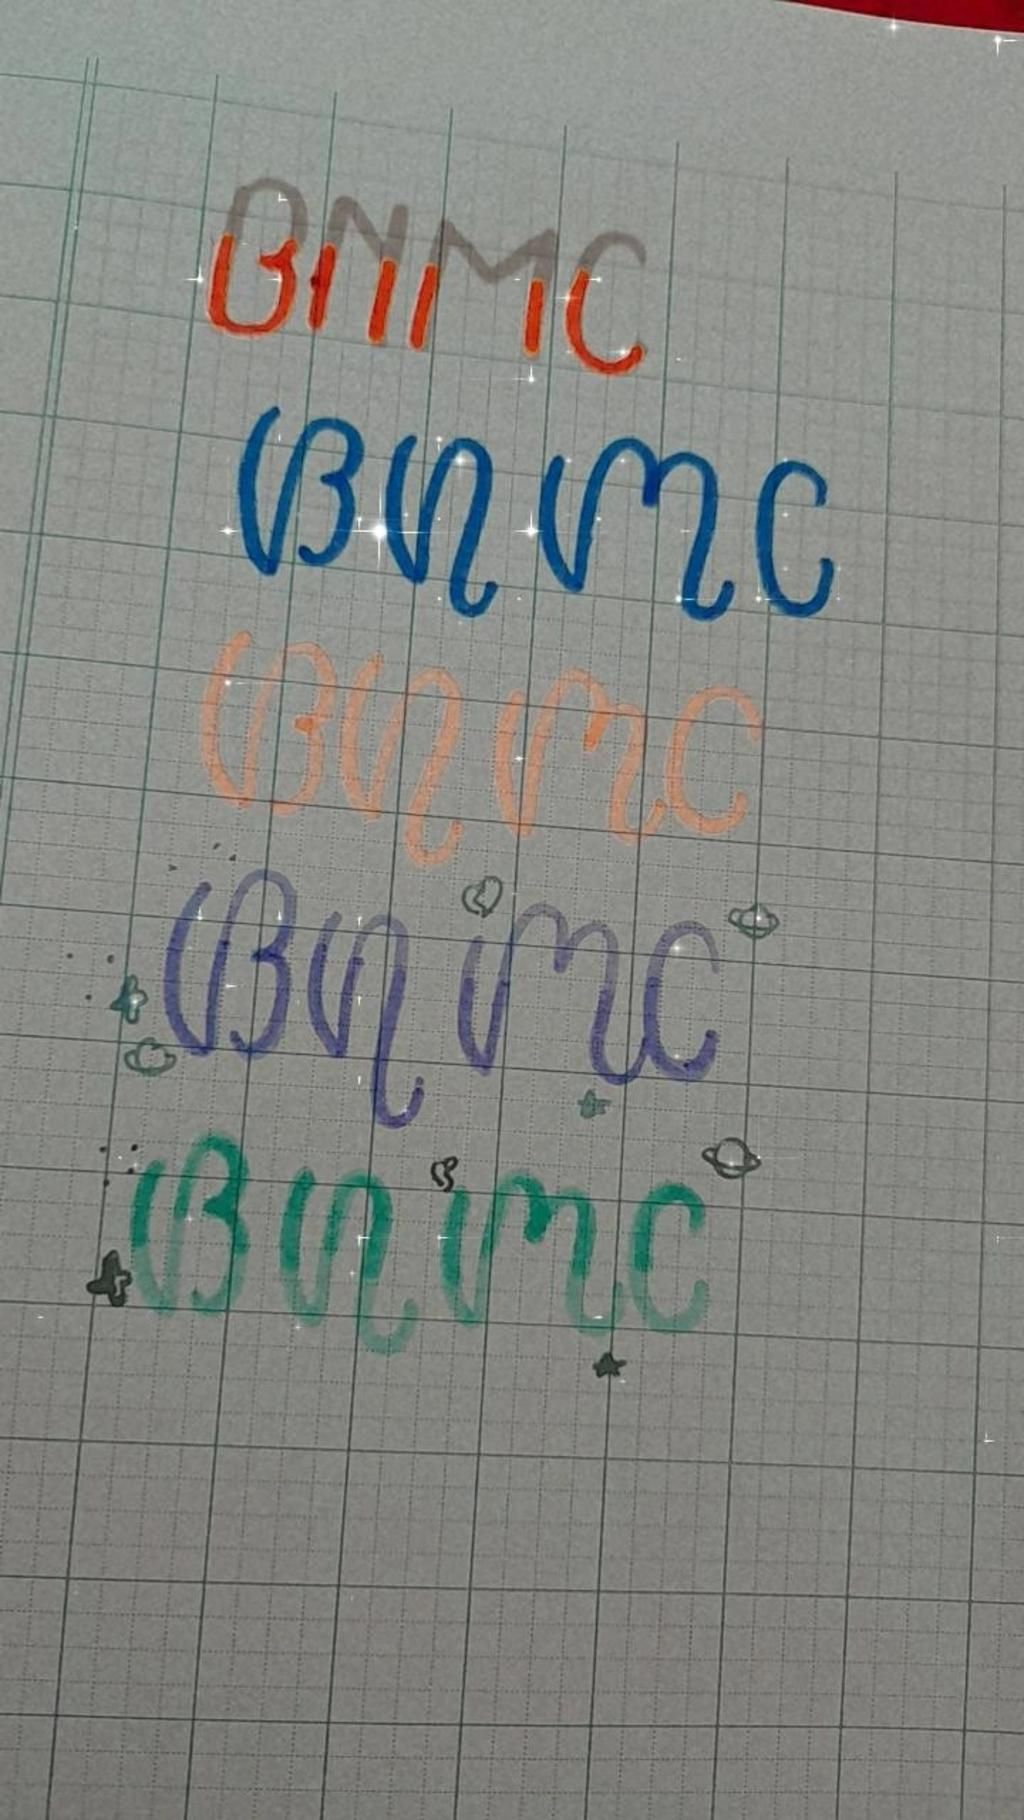 BNMC
BnmC
BnmC
BnmC
BnmC